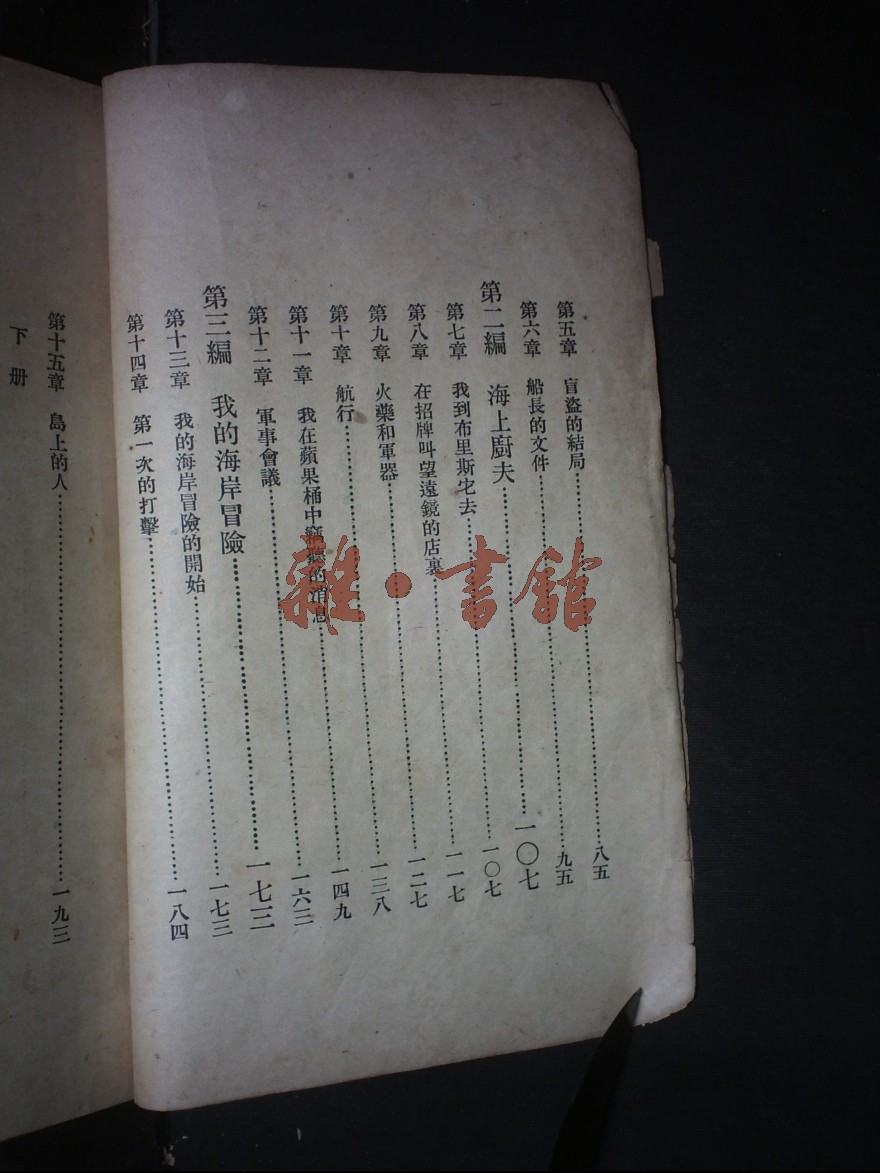 第五章 盲盜的結局……八五
第六章 船長的文件……九五
第二編 海上廚夫……一〇七
第七章 我到布里斯宅去……一〇七
第八章 在招牌叫望遠鏡的店裏……一一七
第九章 火藥和軍器……一二七
第十章 航行……一三八
第十一章 我在蘋果桶中竊聽的消息……一四九
第十二章 軍事會議……一六三
第三編 我的海岸冒險……一七三
第十三章 我的海岸冒險的開始……一七三
第十四章 第一次的打擊……一八四
下册
第十五章 島上的人……一九三
雜·書館